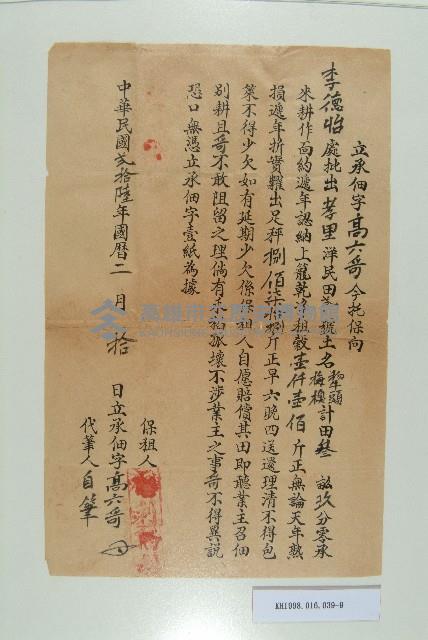 立承佃字高六哥今托保向
李德怡處批出孝里洋民田
號土名
犂頭
梅樓
計田叄
玖分零承
來耕作面約遞年認納上籠乾淨租穀壹仟壹佰斤正無論天年熟
損遞年折實糶出足秤捌佰柒拾捌斤正早六晚四送還理清不得包
葉不得少欠如有延期少欠係保租人自愿賠償其田即聽業主召佃
別耕且哥不敢阻留之理倘有
壞不涉業主之事哥不得異説
恐口無憑立承佃字壹紙為據
中華民國貳拾陸年國曆二月拾
日立承佃字高六哥
保租人
代筆人自筆
高雄市立歷史博物館
KAOHSIUNG MUSEUM OF HISTORY
KH1998.016.039-9